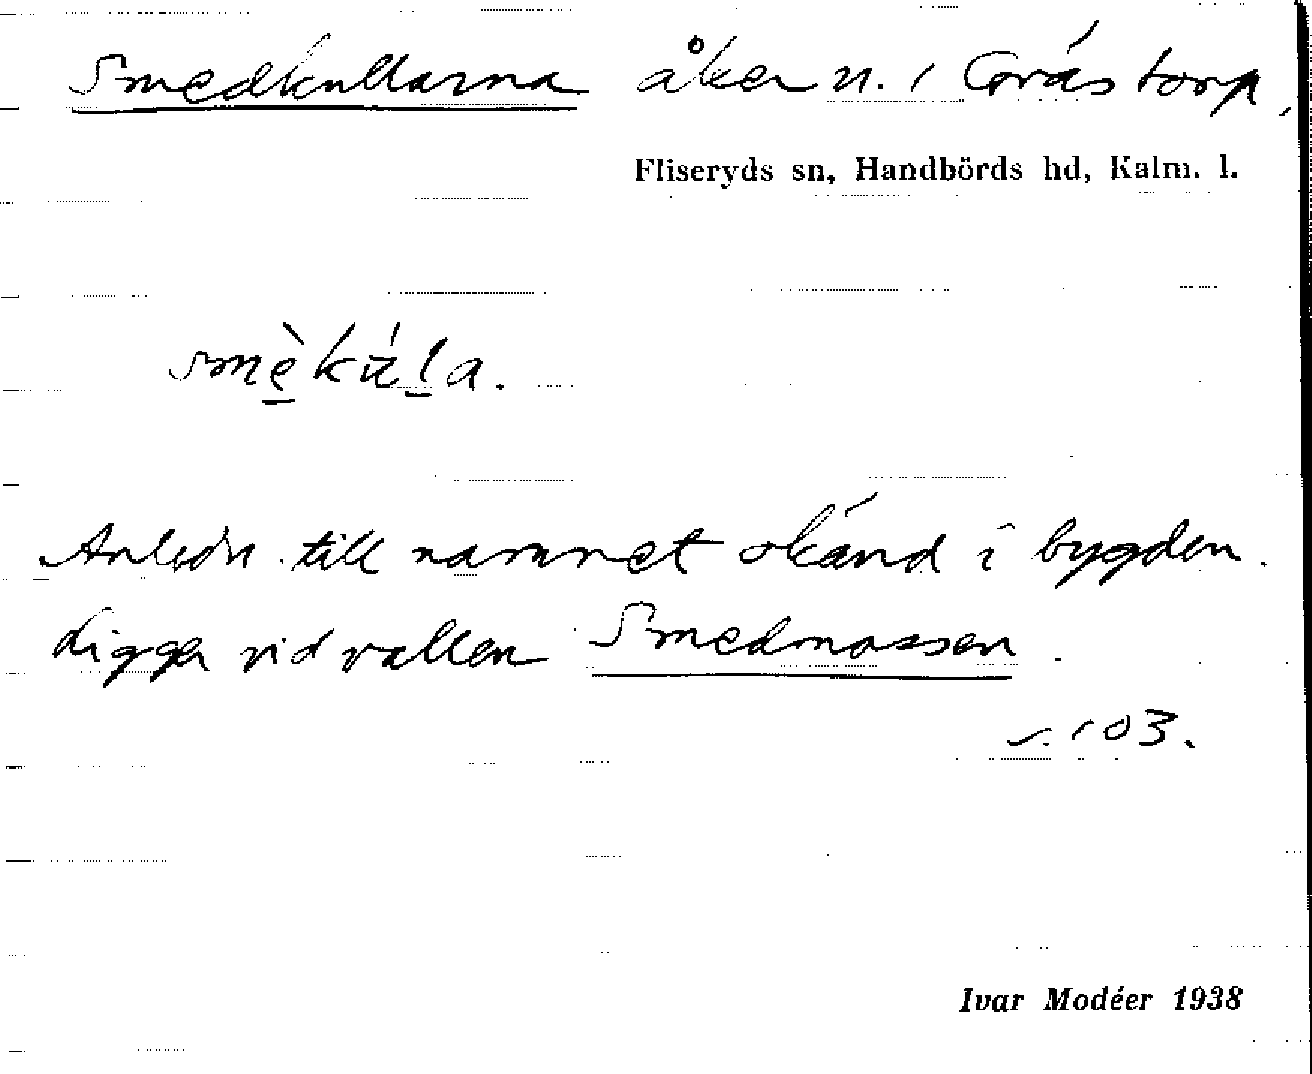 Smedkullarna åker n. i Gråstorp,
Fliseryds sn, Handbörds hd, Kalm. l.
smèkúla.
Anledn. till namnet okänd i bygden.
Ligger vid vallen Smedmossen.
s. 103.
Ivar Modéer 1938